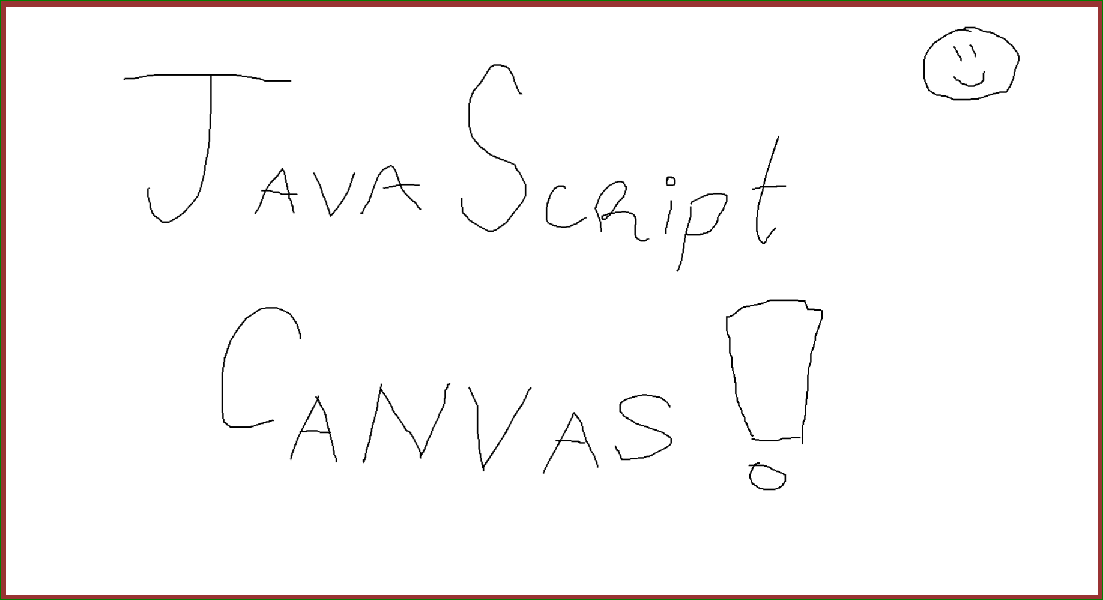 JavaScript
CANVAS!